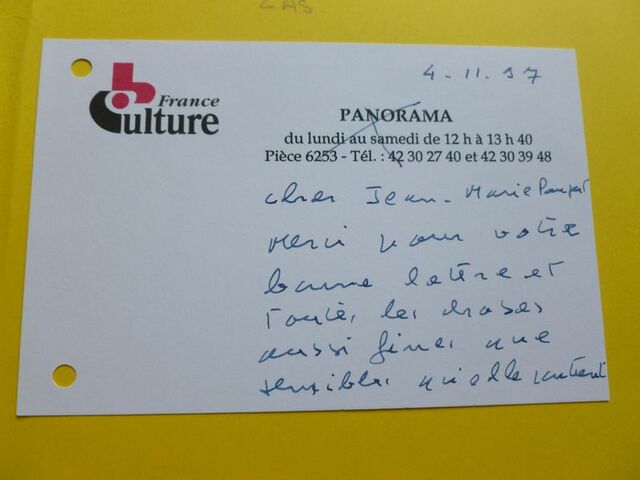 CAS.
4.11.97
France
Culture
PANORAMA
du lundi au samedi de 12 h à 13 h 40
Pièce 6253 - Tél. : 42 30 27 40 et 42 30 39 48
cher Jean-Marie Paupert
Merci pour votre
bonne lettre et
toutes les choses
aussi fines que
sensibles qu'elle contient